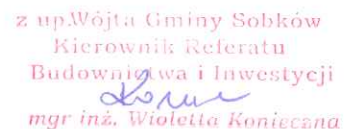 z up.Wójta Gminy Sobków
Kierownik Referatu
Budownictwa i Inwestycji
mgr inż. Wioletta Konieczna